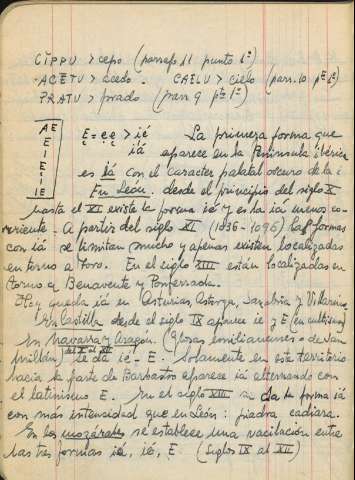 CĬPPU > cepo (párrafo 11 punto 1º)
-ACĒTU > acedo - CAELU > cielo (párr. 10 pº 1º)
PRATU > prado (párr 9 pto 1º)
AE
E
I
E
I
IE
Ę = ęę > ié
iá
La primera forma que
aparece en la Península ibérica
es iá con el carácter palatal oscuro de la i
En León. desde el principio del siglo X
hasta el XI existe la forma ié y esta iá menos co-
rriente - A partir del siglo XI (1036-1096) las formas
con iá se limitan mucho y apenas existen localizadas
en torno a Toro. En el siglo XIII están localizadas en
torno a Benavente y Ponferrada.
Hoy queda iá en Asturias, Astorga, Sanabria y Villarino
En Castilla desde el siglo IX aparece ie y E (en cultismos)
En navarra y Aragón. (Glosas emilianenses o de San
millán) del X al XI
se da ie - E. Solamente en este territorio
hacia la parte de Barbastro aparece iá alternando con
el latinismo E. En el siglo XIII si da la forma iá
con más intensidad que en León: piadra cadiara.
En los mozárabes se establece una vacilación entre
las tres formas iá, ié, E. (Siglos IX al XII)